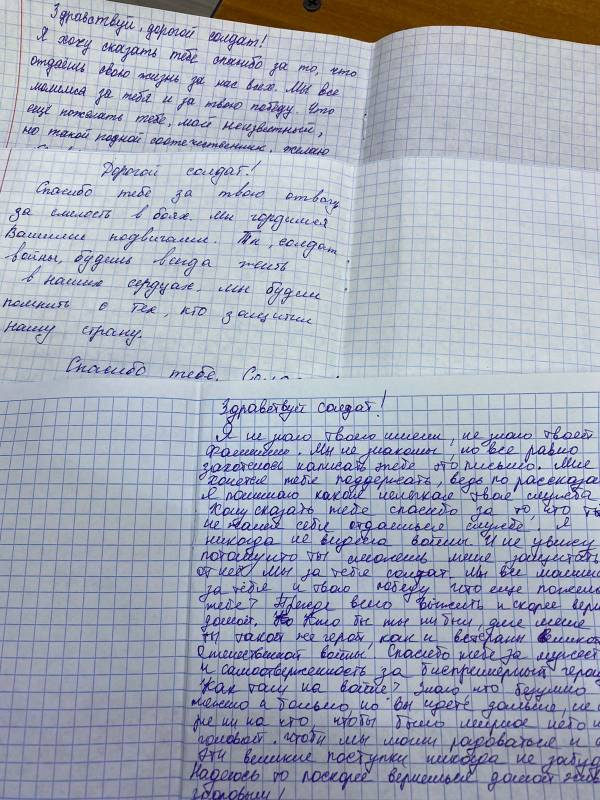 Здравствуй, дорогой солдат!
Я хочу сказать тебе спасибо за то, что
отдаёшь свою жизнь за нас всех. Мы все
молимся за тебя и за твою победу. Что
ещё пожелать тебе, мой неизвестный,
но такой родной соотечественник, желаю
Дорогой солдат!
Спасибо тебе за твою отвагу
за смелость в боях. Мы гордимся
Вашими подвигами. Ты, солдат
войны, будешь всегда жить
в наших сердцах. Мы будем
помнить о тех, кто защитил
нашу страну.
Спасибо тебе. Солдат
Здравствуй солдат!
Я не знаю твоего имени, не знаю твоей
фамилии. Мы не знакомы, но все равно
захотелось написать тебе это письмо. Мне
хочется тебя поддержать, ведь по рассказа
Я понимаю какая нелегкая твоя служба
Хочу сказать тебе спасибо за то, что ты
не жалея себя отдаешься службе, я
никогда не видела войны. И не увижу
потому что ты сможешь меня защитить
от неё. Мы за тебя солдат. Мы все молимся
за тебя и твою победу что еще пожела
тебе? Прежде всего выжить и скорее верн
домой. Кто бы ты ни был, для меня
ты такой же герой, как и ветераны Великой
Отечественной войны. Спасибо тебе за мужест
и самоотверженность за беспримерный герои
Как там на войне? Знаю что безумно
тяжело и больно, но вы идете дальше, не с
ря ни на кто, чтобы было мирное небо н
головой. чтобы мы могли радоваться и
Эти великие поступки никогда не забуд
Надеюсь то поскорее вернешься домой жив
здоровым!